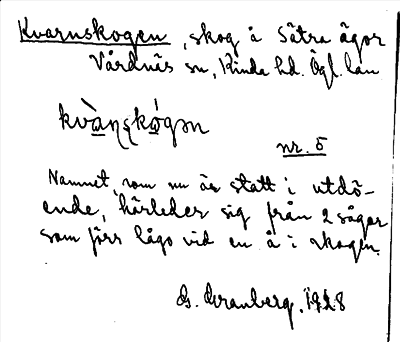 Kvarnskogen, skog å Sätra ägor
Vårdnäs sn, Kinda hd. Ögl. län
kvànskógən
nr. 5
Namnet, som nu är statt i utdö-
ende, härleder sig från 2 sågar
som förr lågo vid en å i skogen.
G. Granberg. 1928